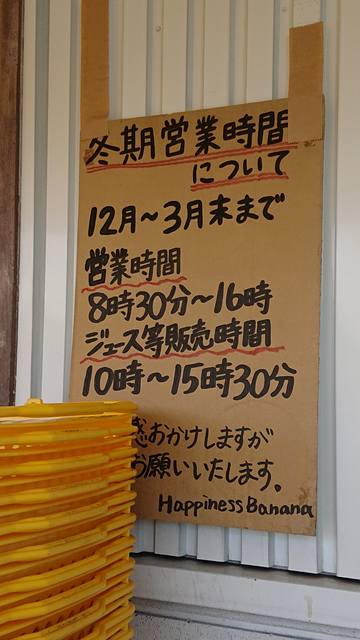 冬期営業時間
について
12月～3月末まで
営業時間
8時30分～16時
ジュース等販売時間
10時～15時30分
惑おかけしますが
お願いいたします。
Happiness Banana